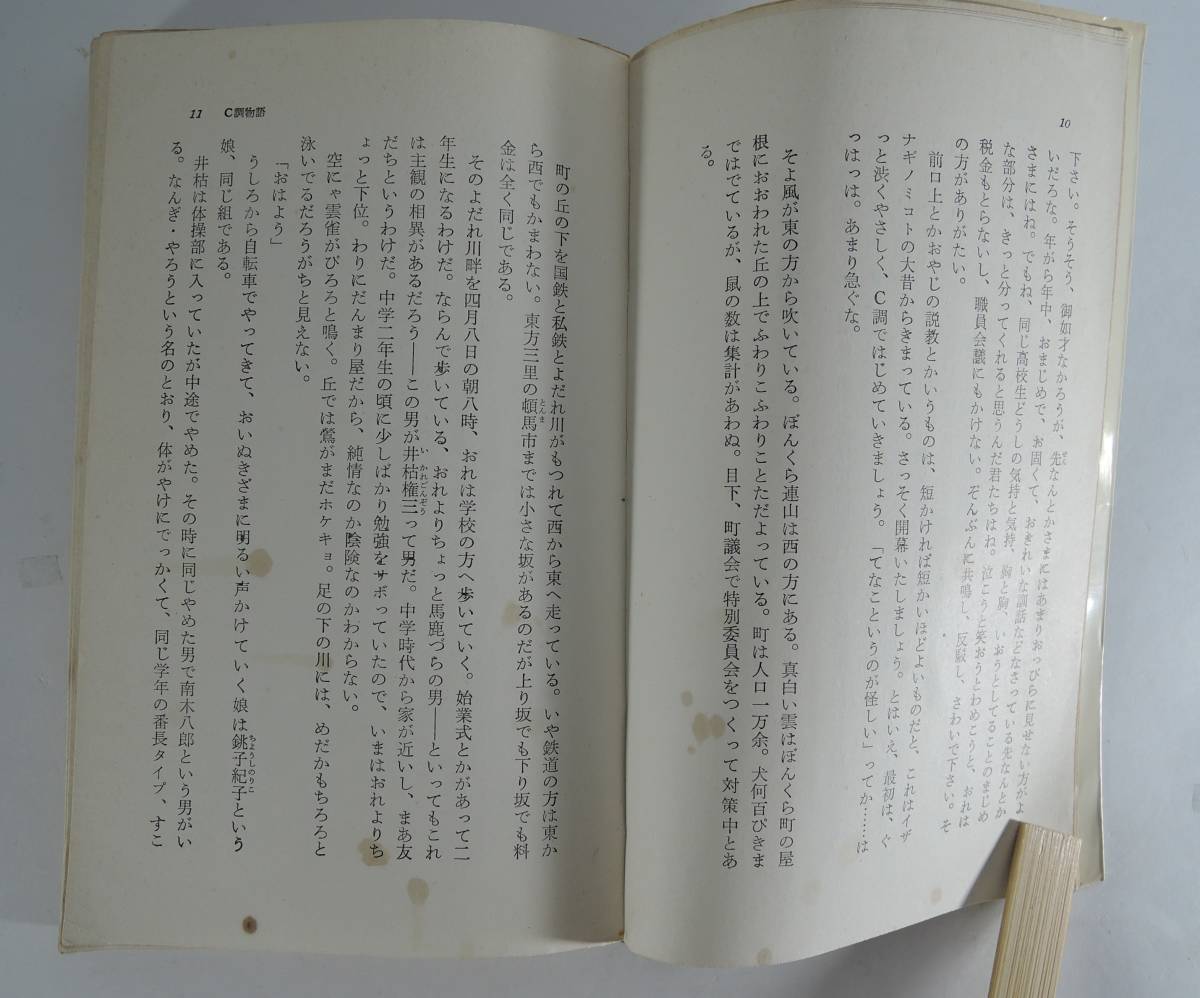 10
下さい。そうそう、御如才なかろうが、先なんとかさまにはあまりおっぴらに見せない方がよ
いだろな。年がら年中、おまじめで、お固くて、おきれいな訓話などなさっている先なんとか
さまにはね。でもね、同じ高校生どうしの気持と気持、胸と胸、いおうとしてることのまじめ
な部分は、きっと分ってくれると思うんだ君たちはね。泣こうと笑おうとわめこうと、おれは
税金もとらないし、職員会議にもかけない。ぞんぶんに共鳴し、反駁し、さわいで下さい。そ
の方がありがたい。
前口上とかおやじの説教とかいうものは、短かければ短かいほどよいものだと、これはイザ
ナギノミコトの大昔からきまっている。さっそく開幕いたしましょう。とはいえ、最初は、ぐ
っと渋くやさしく、C調ではじめていきましょう。「てなこというのが怪しい」ってか……は
っはっは。あまり急ぐな。
そよ風が東の方から吹いている。ぼんくら連山は西の方にある。真白い雲はぼんくら町の屋
根におおわれた丘の上でふわりこふわりことただよっている。町は人口一万余。犬何百ぴきま
ではでているが、鼠の数は集計があわぬ。目下、町議会で特別委員会をつくって対策中とあ
る。
11 C調物語
町の丘の下を国鉄と私鉄とよだれ川がもつれて西から東へ走っている。いや鉄道の方は東か
ら西でもかまわない。東方三里の頓馬市までは小さな坂があるのだが上り坂でも下り坂でも料
とんま
金は全く同じである。
そのよだれ川畔を四月八日の朝八時、おれは学校の方へ歩いていく。始業式とかがあって二
年生になるわけだ。ならんで歩いている、おれよりちょっと馬鹿づらの男――といってもこれ
は主観の相異があるだろう――この男が井枯権三って男だ。中学時代から家が近いし、まあ友
いかれごんぞう
だちというわけだ。中学二年生の頃に少しばかり勉強をサボっていたので、いまはおれよりち
ょっと下位。わりにだんまり屋だから、純情なのか陰険なのかわからない。
空にゃ雲雀がぴろろと鳴く。丘では鶯がまだホケキョ。足の下の川には、めだかもちろろと
泳いでるだろうがちと見えない。
「おはよう」
うしろから自転車でやってきて、おいぬきざまに明るい声かけていく娘は銚子紀子という
ちょうしのりこ
娘、同じ組である。
井枯は体操部に入っていたが中途でやめた。その時に同じやめた男で南木八郎という男がい
る。なんぎ・やろうという名のとおり、体がやけにでっかくて、同じ学年の番長タイプ、すこ